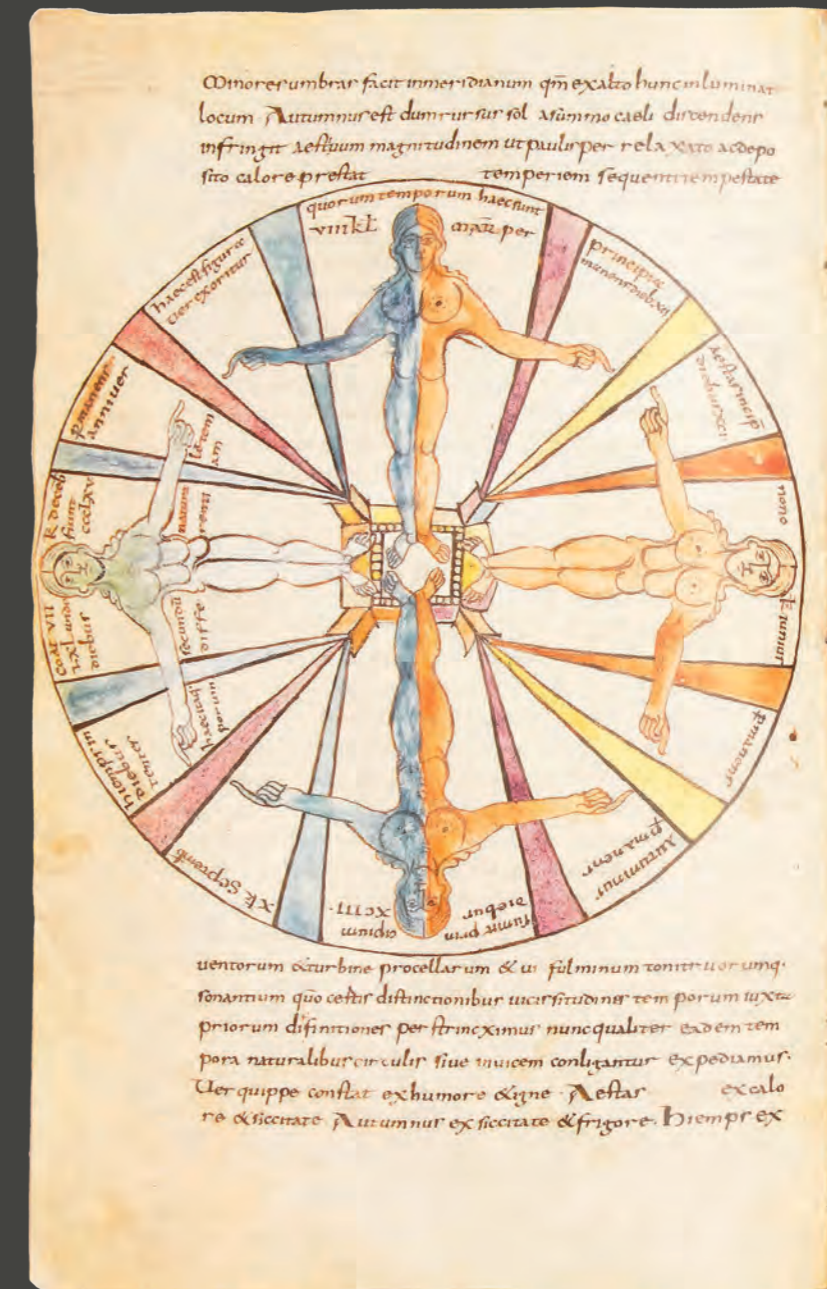 Minores umbras facit in meridianum qm̄ ex alto hunc inluminat
locum Autumnus est dum rursus sol a summo caeli discendens
infringit aestiuum magnitudinem ut paulisper relaxato ac depo
sito calore prestat temperiem sequenti tempestate
quorum temporum haec sunt
VIII KL MAR per
haec est figura
Uer exoritur
principiū
manens dieb XCI
p manens
anni uer
aestas incip
diebus XCI
nono
k iunius
p manens
autumnus
p manens
sumit prin
diebus
cipium
XCIII
XK Septemb
hiemps in
diebus
natura
secundū
diffe
R dieceb
fiunt
CCCLXV
diebus
uentorum & turbine procellarum & ui fulminum tonitruorumq·
sonantium quo certis distinctionibus uicissitudines temporum iuxta
priorum difinitiones perstrincximus nunc qualiter eadem tem
pora naturalibus circulis siue inuicem conligantur expediamus·
Uer quippe constat ex humore & igne Aestas ex calo
re & siccitate Autumnus ex siccitate & frigore· Hiemps ex